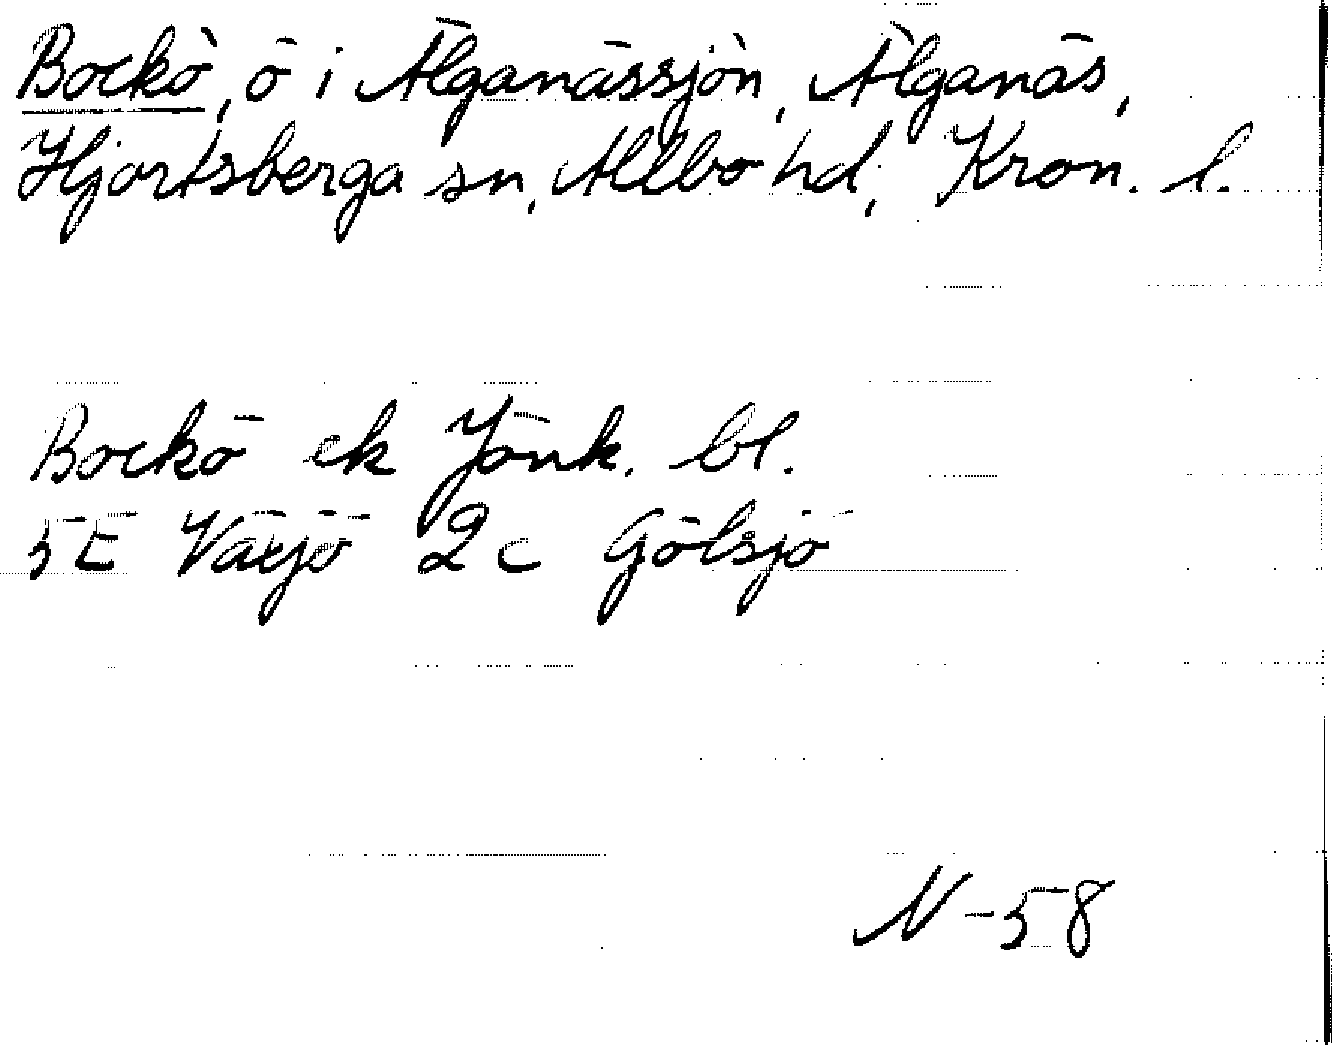 Bockö, ö i Älganässjön, Älganäs,
Hjortsberga sn, Allbo hd, Kron. l.
Bockö ek Jönk. bl.
5E Växjö 2c Gölsjö
N-58